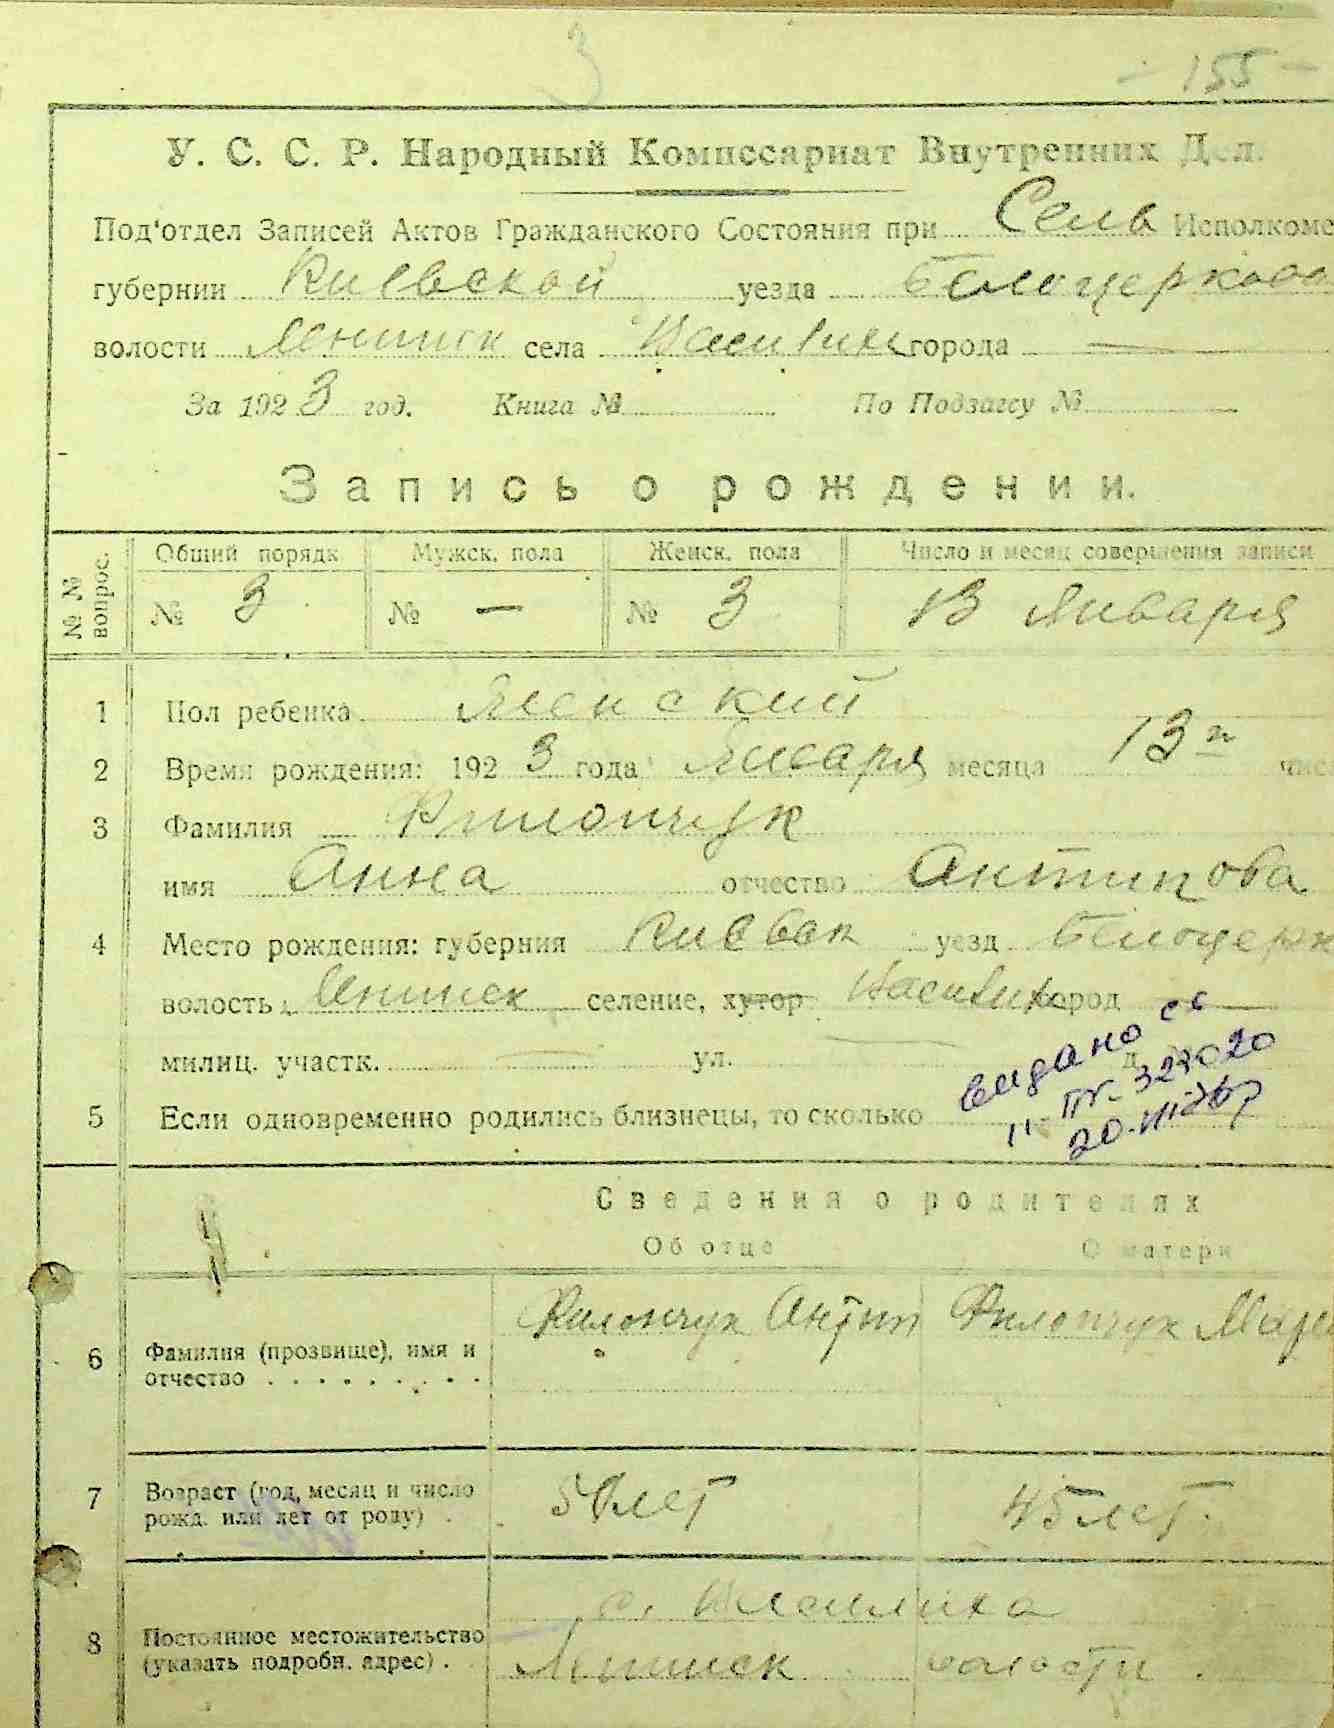 3
- 155 -
У. С. С. Р. Народный Комиссариат Внутренних Дел.
Под'отдел Записей Актов Гражданского Состояния при Сель Исполкоме
губернии Киевской уезда Белоцерковс
волости села города —
За 1923 год. Книга № По Подзагсу №
Запись о рождении.
№ № вопрос.
Общий порядк. Мужск. пола Женск. пола Число и месяц совершения записи
№ 3 № — № 3 13 Января
1 Пол ребенка Женский
2 Время рождения: 1923 года Января месяца 13го чис
3 Фамилия Филончук
имя Анна отчество Антипова
4 Место рождения: губерния Киевск уезд Белоцерк
волость селение, хутор город —
милиц. участк. — ул. — д.
5 Если одновременно родились близнецы, то сколько
видано св
II-
20-
Сведения о родителях
Об отце О матери
6 Фамилия (прозвище), имя и
отчество . . . . . . . . .
Филончук Антип Филончук Мари
7 Возраст (год, месяц и число
рожд. или лет от роду) .
50 лет 45 лет.
8 Постоянное местожительство
(указать подробн. адрес) .
с.
волости.